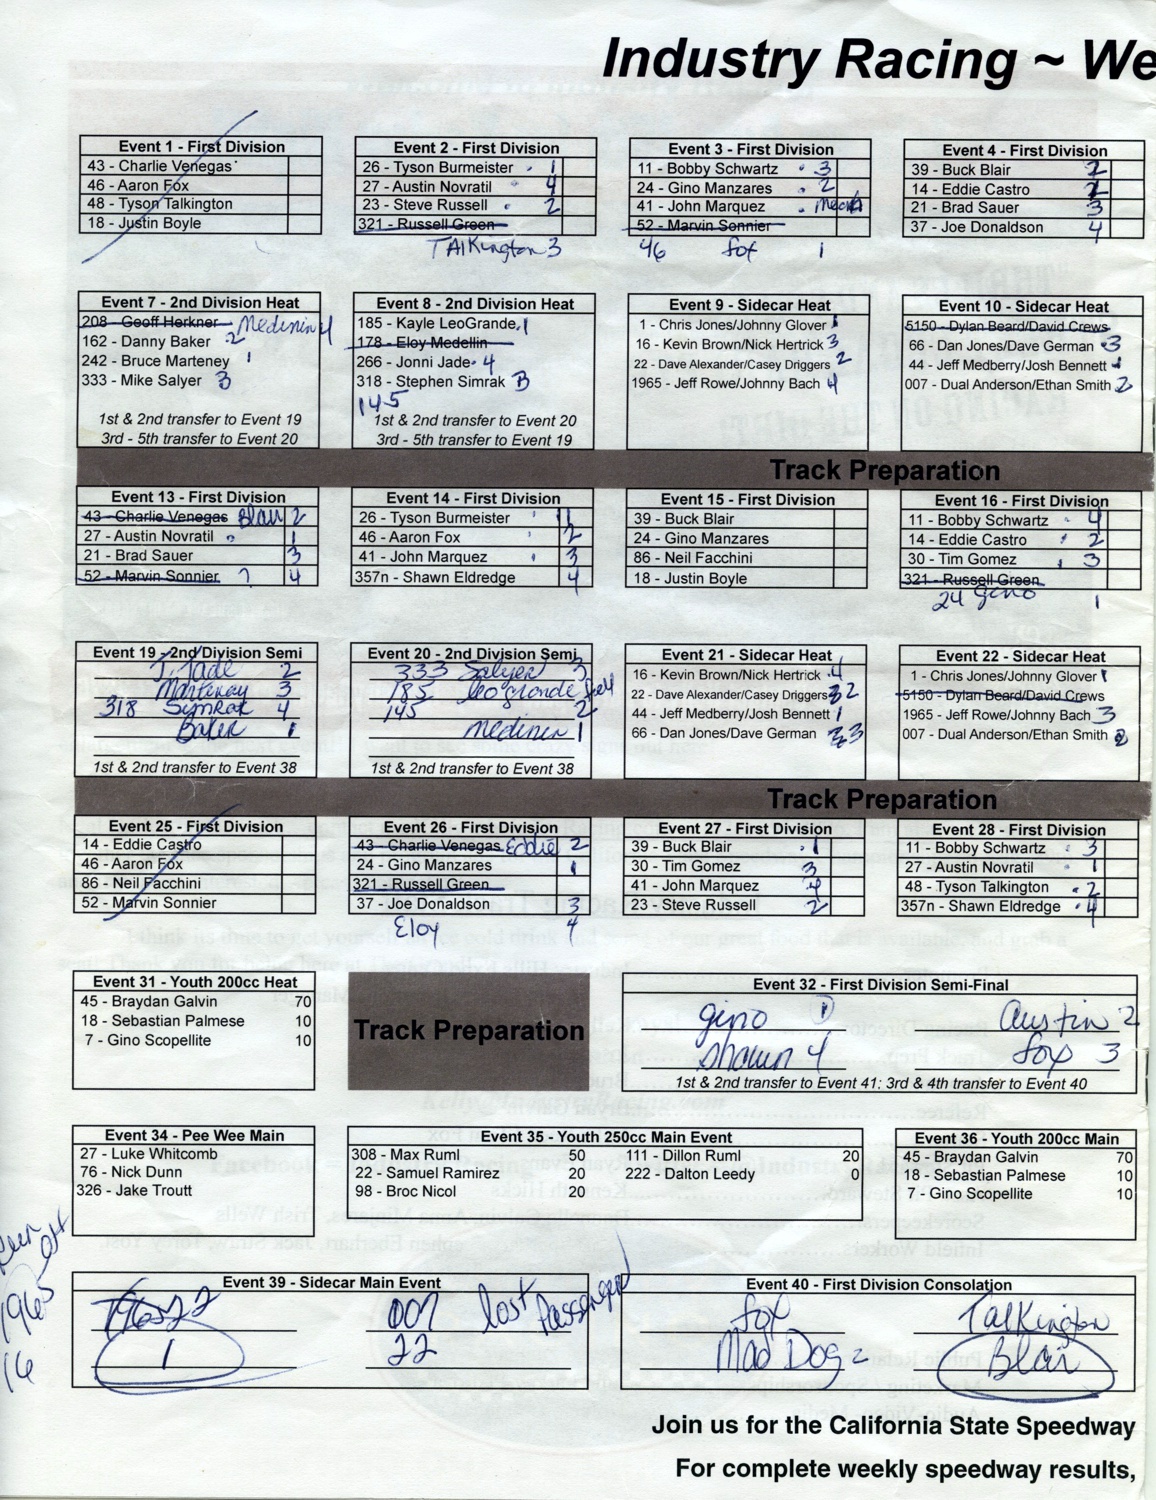 Industry Racing ~ We
Event 1 - First Division
43 - Charlie Venegas
46 - Aaron Fox
48 - Tyson Talkington
18 - Justin Boyle
Event 2 - First Division
26 - Tyson Burmeister 1
27 - Austin Novratil 4
23 - Steve Russell 2
321 - Russell Green
TAlKington 3
Event 3 - First Division
11 - Bobby Schwartz 3
24 - Gino Manzares 2
41 - John Marquez
52 - Marvin Sonnier
46 fox 1
Event 4 - First Division
39 - Buck Blair
14 - Eddie Castro
21 - Brad Sauer 3
37 - Joe Donaldson 4
Event 7 - 2nd Division Heat
208 - Geoff Herkner Medinin 4
162 - Danny Baker 2
242 - Bruce Marteney 1
333 - Mike Salyer 3
1st & 2nd transfer to Event 19
3rd - 5th transfer to Event 20
Event 8 - 2nd Division Heat
185 - Kayle LeoGrande, 1
178 - Eloy Medellin
266 - Jonni Jade 4
318 - Stephen Simrak 3
145
1st & 2nd transfer to Event 20
3rd - 5th transfer to Event 19
Event 9 - Sidecar Heat
1 - Chris Jones/Johnny Glover 1
16 - Kevin Brown/Nick Hertrick 3
22 - Dave Alexander/Casey Driggers 2
1965 - Jeff Rowe/Johnny Bach 4
Event 10 - Sidecar Heat
5150 - Dylan Beard/David Crews
66 - Dan Jones/Dave German 3
44 - Jeff Medberry/Josh Bennett 1
007 - Dual Anderson/Ethan Smith 2
Track Preparation
Event 13 - First Division
43 - Charlie Venegas Blair 2
27 - Austin Novratil 1
21 - Brad Sauer 3
52 - Marvin Sonnier ? 4
Event 14 - First Division
26 - Tyson Burmeister 1
46 - Aaron Fox 2
41 - John Marquez 3
357n - Shawn Eldredge 4
Event 15 - First Division
39 - Buck Blair
24 - Gino Manzares
86 - Neil Facchini
18 - Justin Boyle
Event 16 - First Division
11 - Bobby Schwartz 4
14 - Eddie Castro 2
30 - Tim Gomez 3
321 - Russell Green
24 gino 1
Event 19 - 2nd Division Semi
J. Jade 2
Martenay 3
318 Simrak 4
Baker 1
1st & 2nd transfer to Event 38
Event 20 - 2nd Division Semi
333 Salyer 3
185 leogrande fell
145 2
medinin 1
1st & 2nd transfer to Event 38
Event 21 - Sidecar Heat
16 - Kevin Brown/Nick Hertrick 4
22 - Dave Alexander/Casey Driggers 2
44 - Jeff Medberry/Josh Bennett 1
66 - Dan Jones/Dave German 3
Event 22 - Sidecar Heat
1 - Chris Jones/Johnny Glover 1
5150 - Dylan Beard/David Crews
1965 - Jeff Rowe/Johnny Bach 3
007 - Dual Anderson/Ethan Smith 2
Track Preparation
Event 25 - First Division
14 - Eddie Castro
46 - Aaron Fox
86 - Neil Facchini
52 - Marvin Sonnier
Event 26 - First Division
43 - Charlie Venegas Eddie 2
24 - Gino Manzares 1
321 - Russell Green
37 - Joe Donaldson 3
Eloy 4
Event 27 - First Division
39 - Buck Blair 1
30 - Tim Gomez 3
41 - John Marquez 4
23 - Steve Russell 2
Event 28 - First Division
11 - Bobby Schwartz 3
27 - Austin Novratil 1
48 - Tyson Talkington 2
357n - Shawn Eldredge 4
Event 31 - Youth 200cc Heat
45 - Braydan Galvin 70
18 - Sebastian Palmese 10
7 - Gino Scopellite 10
Track Preparation
Event 32 - First Division Semi-Final
gino 1 Austin 2
shawn 4 fox 3
1st & 2nd transfer to Event 41: 3rd & 4th transfer to Event 40
Event 34 - Pee Wee Main
27 - Luke Whitcomb
76 - Nick Dunn
326 - Jake Troutt
Event 35 - Youth 250cc Main Event
308 - Max Ruml 50 111 - Dillon Ruml 20
22 - Samuel Ramirez 20 222 - Dalton Leedy 0
98 - Broc Nicol 20
Event 36 - Youth 200cc Main
45 - Braydan Galvin 70
18 - Sebastian Palmese 10
7 - Gino Scopellite 10
1965
16
Event 39 - Sidecar Main Event
007 lost Passenger
1 22
Event 40 - First Division Consolation
fox TalKington
Mad Dog 2 Blair
Join us for the California State Speedway
For complete weekly speedway results,